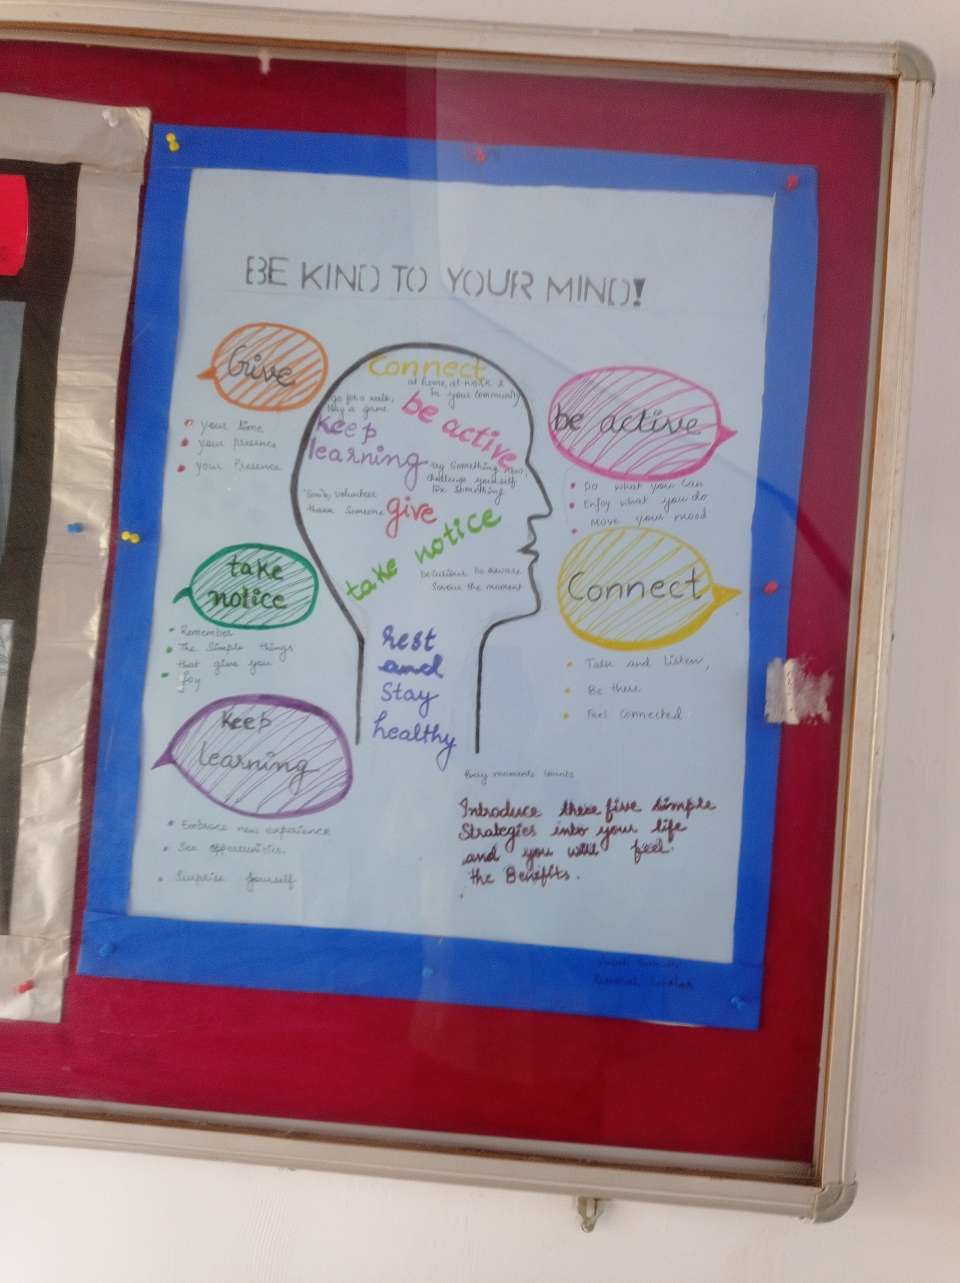 BE KIND TO YOUR MIND!
Give
your time
your presence
your Presence
take
notice
Remember
The simple things
that give you
Joy
Keep
learning
Embrace new experience
See opportunities.
Surprise Yourself
Connect
at home, at work &
In your community
go for a walk,
Play a game
be active
Keep
learning
try Something new,
challenge yourself
fix Something
Smile, volunteer
thank Someone
give
take notice
be curious be aware
Savour the moment
rest
and
Stay
healthy
be active
Do what you Can
Enjoy what you do
Move your mood
Connect
Talk and Listen,
Be there
Feel Connected
moments
Introduce these five simple
Strategies into your life
and you will feel
the Benefits.